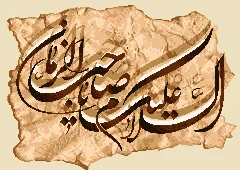 السلام علیک یا صاحب الزمان